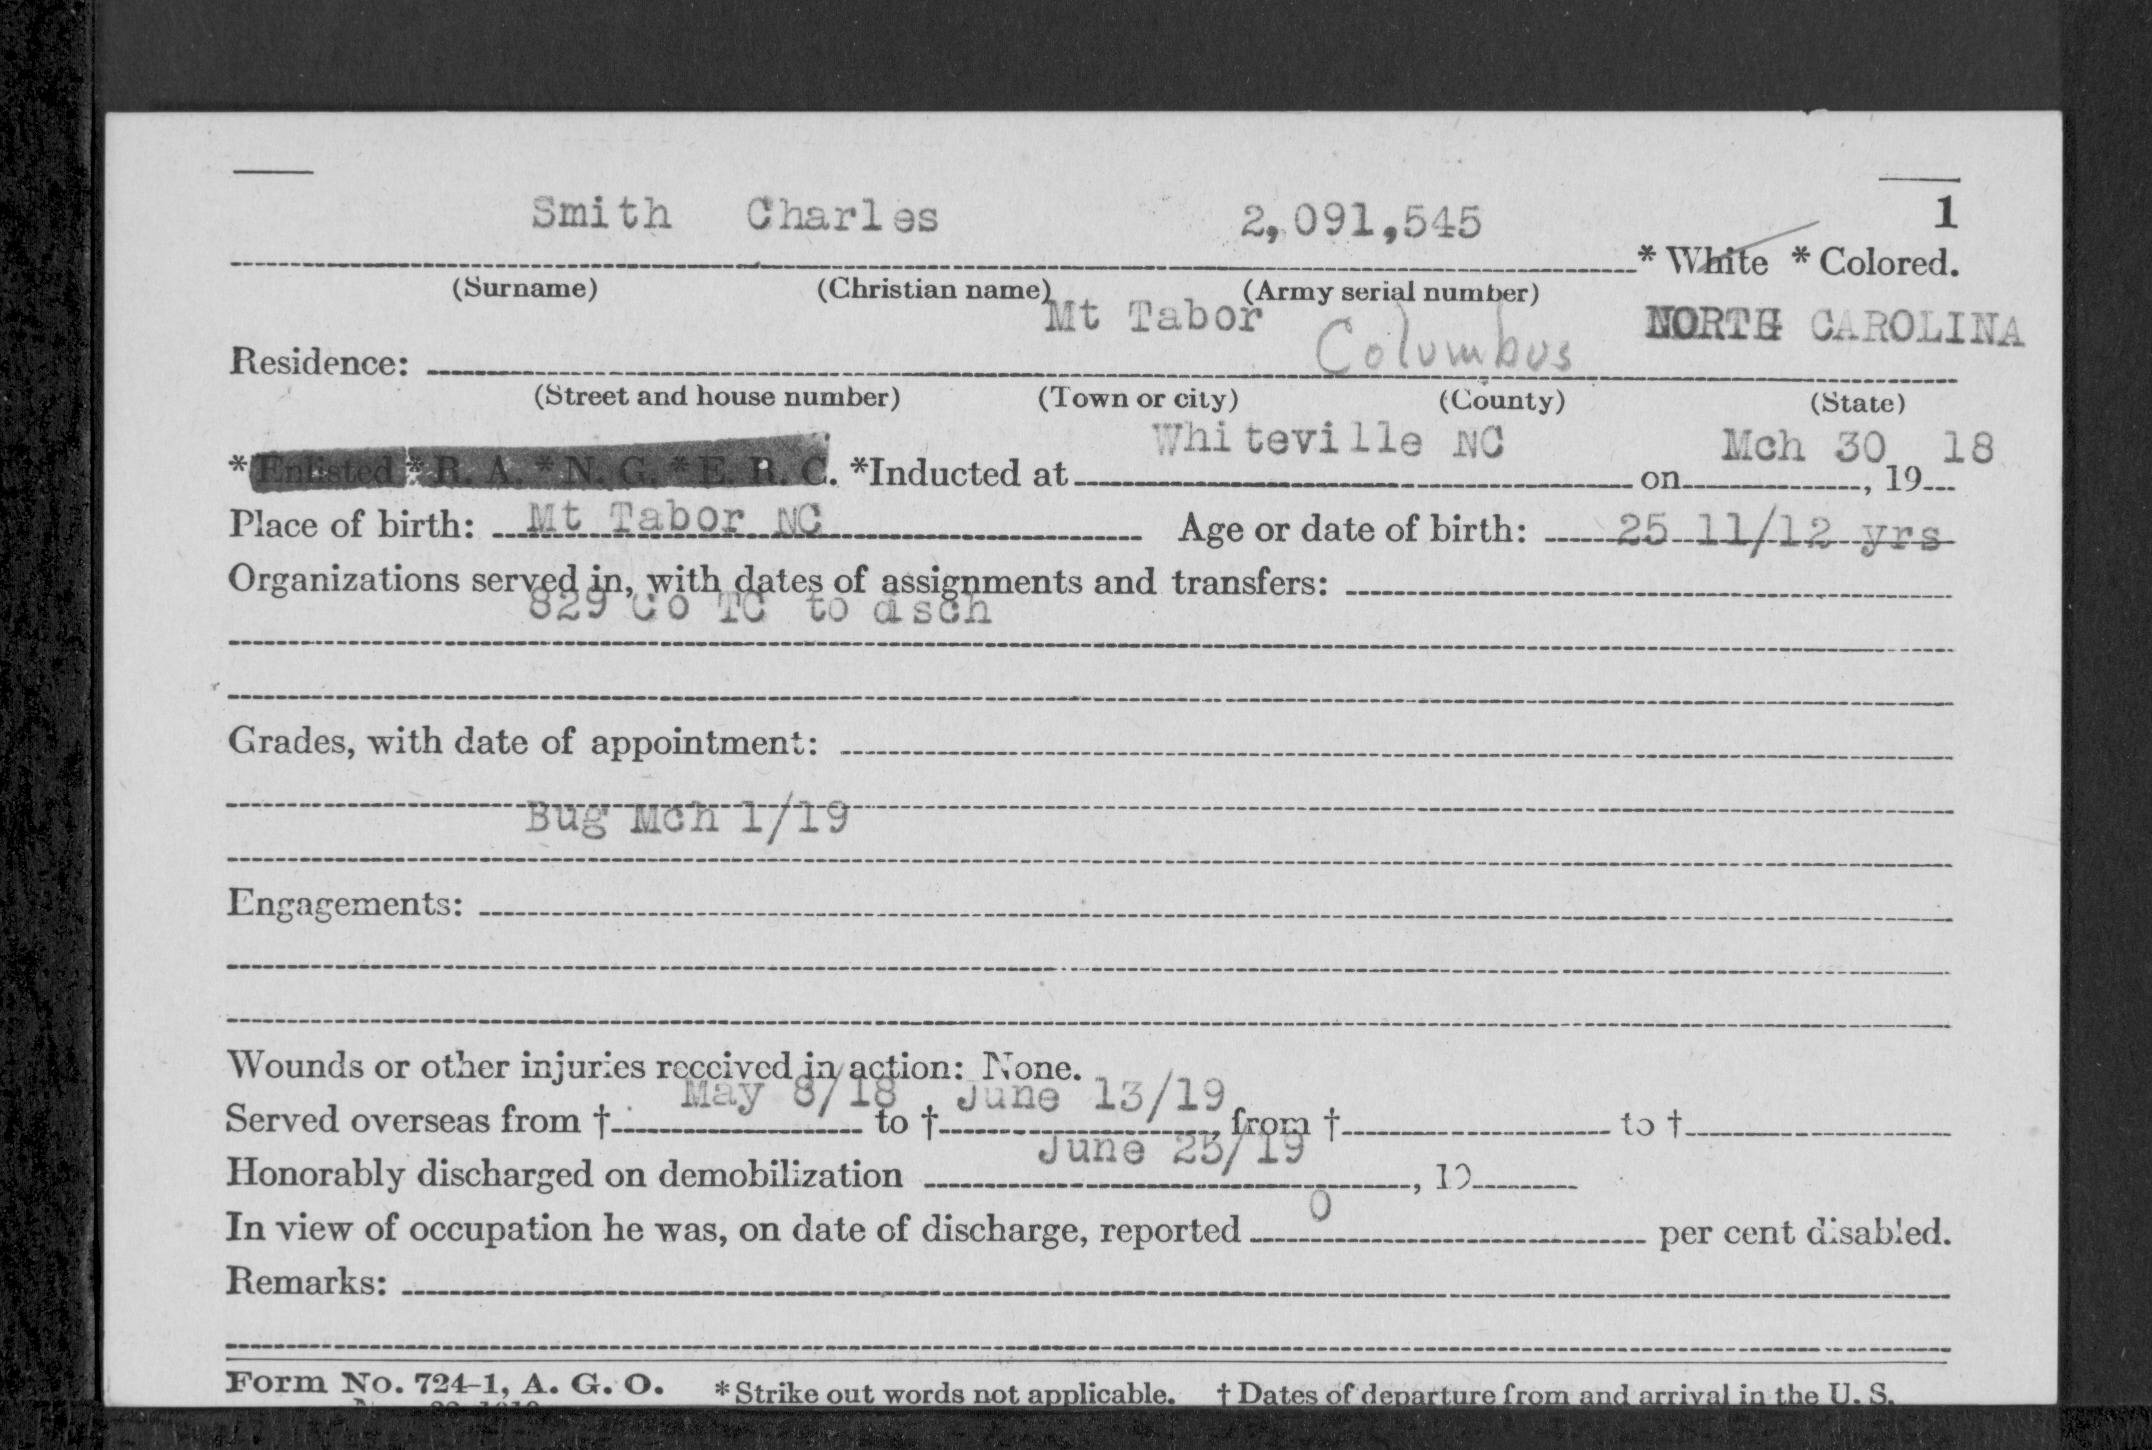 Smith Charles 2,091,545 1
* White * Colored.
(Surname) (Christian name) (Army serial number)
Residence: Mt Tabor Columbus NORTH CAROLINA
(Street and house number) (Town or city) (County) (State)
*Enlisted *R. A. *N. G. *E. R. C. *Inducted at Whiteville NC on Mch 30, 19 18
Place of birth: Mt Tabor NC Age or date of birth: 25 11/12 yrs
Organizations served in, with dates of assignments and transfers:
829 Co TC to disch
Grades, with date of appointment:
Bug Mch 1/19
Engagements:
Wounds or other injuries received in action: None.
Served overseas from † May 8/18 to † June 13/19, from † to †
Honorably discharged on demobilization June 25/19, 19
In view of occupation he was, on date of discharge, reported 0 per cent disabled.
Remarks:
Form No. 724-1, A. G. O. * Strike out words not applicable. † Dates of departure from and arrival in the U. S.